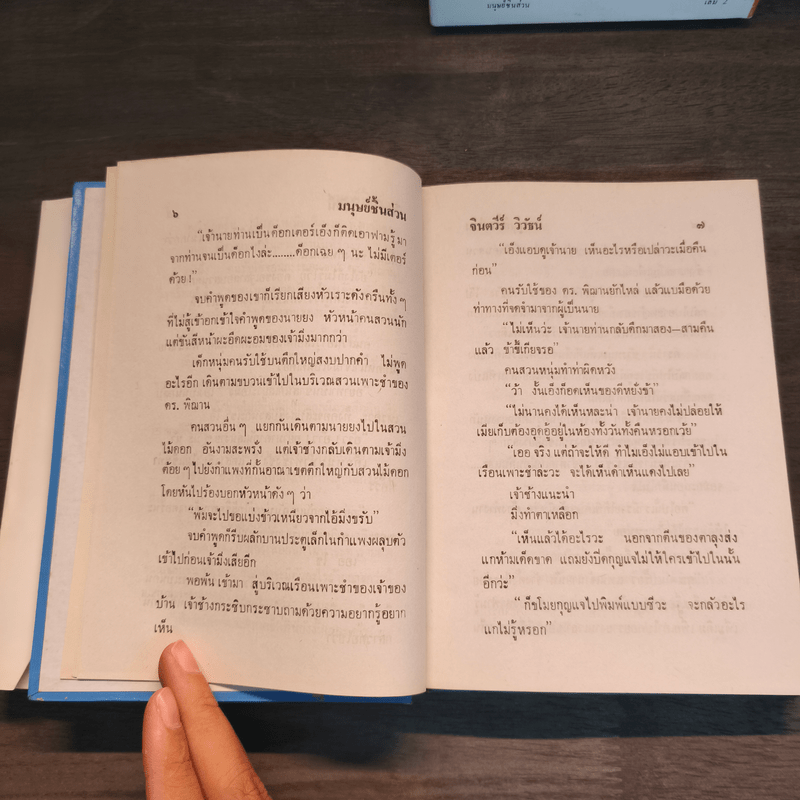 มนุษย์ชิ้นส่วน
เล่ม ๒
๖ มนุษย์ชิ้นส่วน
"เจ้านายท่านเป็นด็อกเตอร์เอ็งก็ติดเอาฟามรู้มา
จากท่านจนเป็นด็อกไงล่ะ........ด็อกเฉย ๆ นะ ไม่มีเตอร์
ด้วย!"
จบคำพูดของเขาก็เรียกเสียงหัวเราะดังครืนทั้ง ๆ
ที่ไม่สู้เข้าอกเข้าใจคำพูดของนายยง หัวหน้าคนสวนนัก
แต่ขันสีหน้าผะอืดผะอมของเจ้ามิ่งมากกว่า
เด็กหนุ่มคนรับใช้บนตึกใหญ่สงบปากคำ ไม่พูด
อะไรอีก เดินตามขบวนเข้าไปในบริเวณสวนเพาะชำของ
ดร. พิฌาน
คนสวนอื่น ๆ แยกกันเดินตามนายยงไปในสวน
ไม้ดอก อันงามสะพรั่ง แต่เจ้าช้างกลับเดินตามเจ้ามิ่ง
ต้อย ๆ ไปยังกำแพงที่กั้นอาณาเขตตึกใหญ่กับสวนไม้ดอก
โดยหันไปร้องบอกหัวหน้าดัง ๆ ว่า
"พ้มจะไปขอแบ่งข้าวเหนียวจากไอ้มิ่งขรับ"
จบคำพูดก็รีบผลักบานประตูเล็กในกำแพงผลุบตัว
เข้าไปก่อนเจ้ามิ่งเสียอีก
พอพ้นเข้ามา สู่บริเวณเรือนเพาะชำของเจ้าของ
บ้าน เจ้าช้างกระซิบกระซาบถามด้วยความอยากรู้อยาก
เห็น
จินตวีร์ วิวัธน์ ๗
"เอ็งแอบดูเจ้านาย เห็นอะไรหรือเปล่าวะเมื่อคืน
ก่อน"
คนรับใช้ของ ดร. พิฌานยักไหล่ แล้วแบมือด้วย
ท่าทางที่จดจำมาจากผู้เป็นนาย
"ไม่เห็นว่ะ เจ้านายท่านกลับดึกมาสอง—สามคืน
แล้ว ข้าขี้เกียจรอ"
คนสวนหนุ่มทำท่าผิดหวัง
"ว้า งั้นเอ็งก็อดเห็นของดีหยั่งข้า"
"ไม่นานคงได้เห็นหละน่า เจ้านายคงไม่ปล่อยให้
เมียเก็บต้องอุดอู้อยู่ในห้องทั้งวันทั้งคืนหรอกเว้ย"
"เออ จริง แต่ถ้าจะให้ดี ทำไมเอ็งไม่แอบเข้าไปใน
เรือนเพาะชำล่ะวะ จะได้เห็นดำเห็นแดงไปเลย"
เจ้าช้างแนะนำ
มิ่งทำตาเหลือก
"เห็นแล้วได้อะไรวะ นอกจากตีนของตาลุงส่ง
แกห้ามเด็ดขาด แถมยังปิดกุญแจไม่ให้ใครเข้าไปในนั้น
อีกว่ะ"
"ก็ขโมยกุญแจไปพิมพ์แบบซีวะ จะกลัวอะไร
แกไม่รู้หรอก"